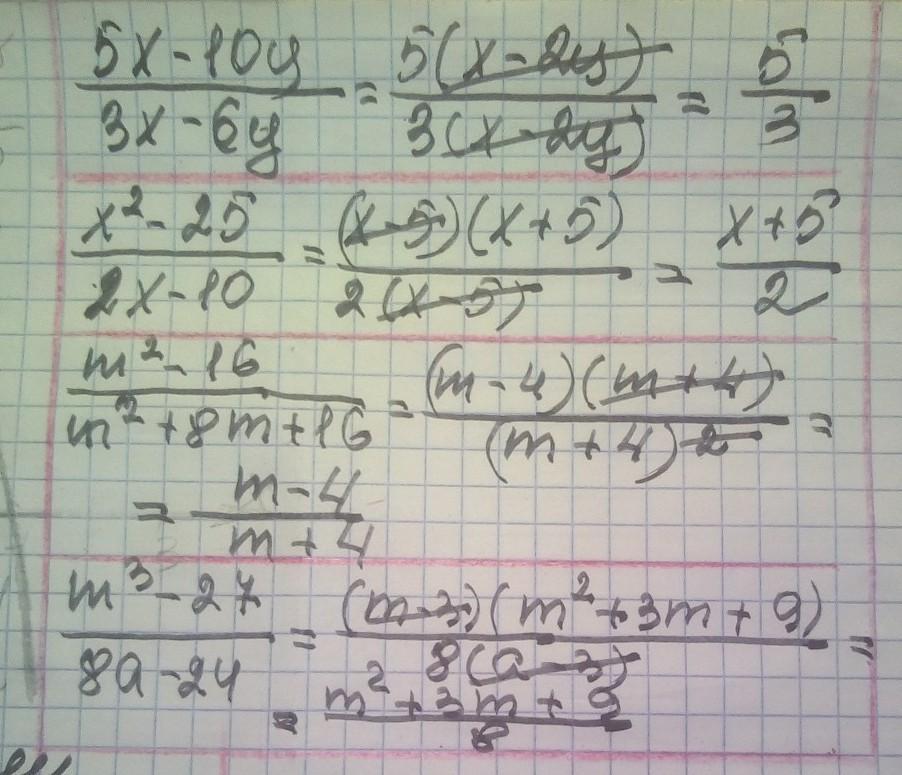 5x-10y / 3x-6y = 5(x-2y) / 3(x-2y) = 5/3
x²-25 / 2x-10 = (x-5)(x+5) / 2(x-5) = x+5 / 2
m²-16 / m²+8m+16 = (m-4)(m+4) / (m+4)2 =
= m-4 / m+4
m³-27 / 8a-24 = (m-3)(m²+3m+9) / 8(a-3) =
= m²+3m+9 / 8